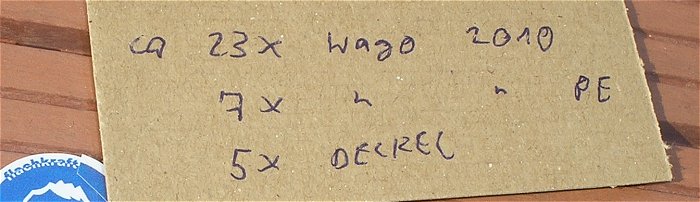 ca 23x Wago 2010
7x " " PE
5x DECKEL
flachkraft